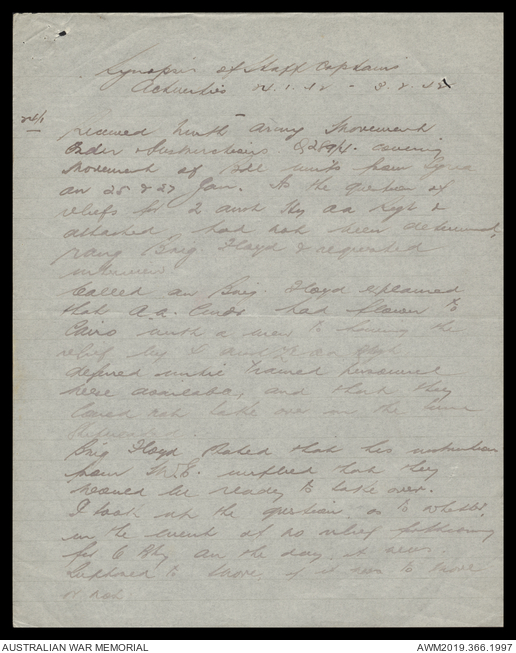 Synopsis of Staff Captains
Activities 24.1.42 - 3.2.42
24/1
received Ninth Army Movement
Order & Instructions covering
Movement of units from Syria
on 25 & 27 Jan. As the question of
reliefs for 2 Aust Hy AA Regt &
attached had not been determined,
rang Brig Floyd & requested
interview.
Called on Brig. Floyd explained
that A.A. had flown to
Cairo with a view to having the
relief by 4 Aust AA Regt
defined until trained personnel
were available, and that they
could not take over in the time
Brig Floyd stated that his instruction
from M.E. implied that they
would be ready to take over.
I took up the question as to whether,
in the event of no relief
for 6 Bty on the day it was
supposed to move, if it was to move
or not
AUSTRALIAN WAR MEMORIAL
AWM2019.366.1997